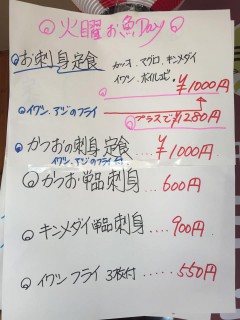 火曜お魚Day
お刺身定食
カツオ、マグロ、キンメダイ
イワシ、ボイルエビ
¥1000円
イワシ、アジのフライ
プラスで¥1280円
かつおの刺身定食....¥1000円
イワシ、アジのフライ付
かつお単品刺身...600円
キンメダイ単品刺身...900円
イワシフライ 3枚付.....550円